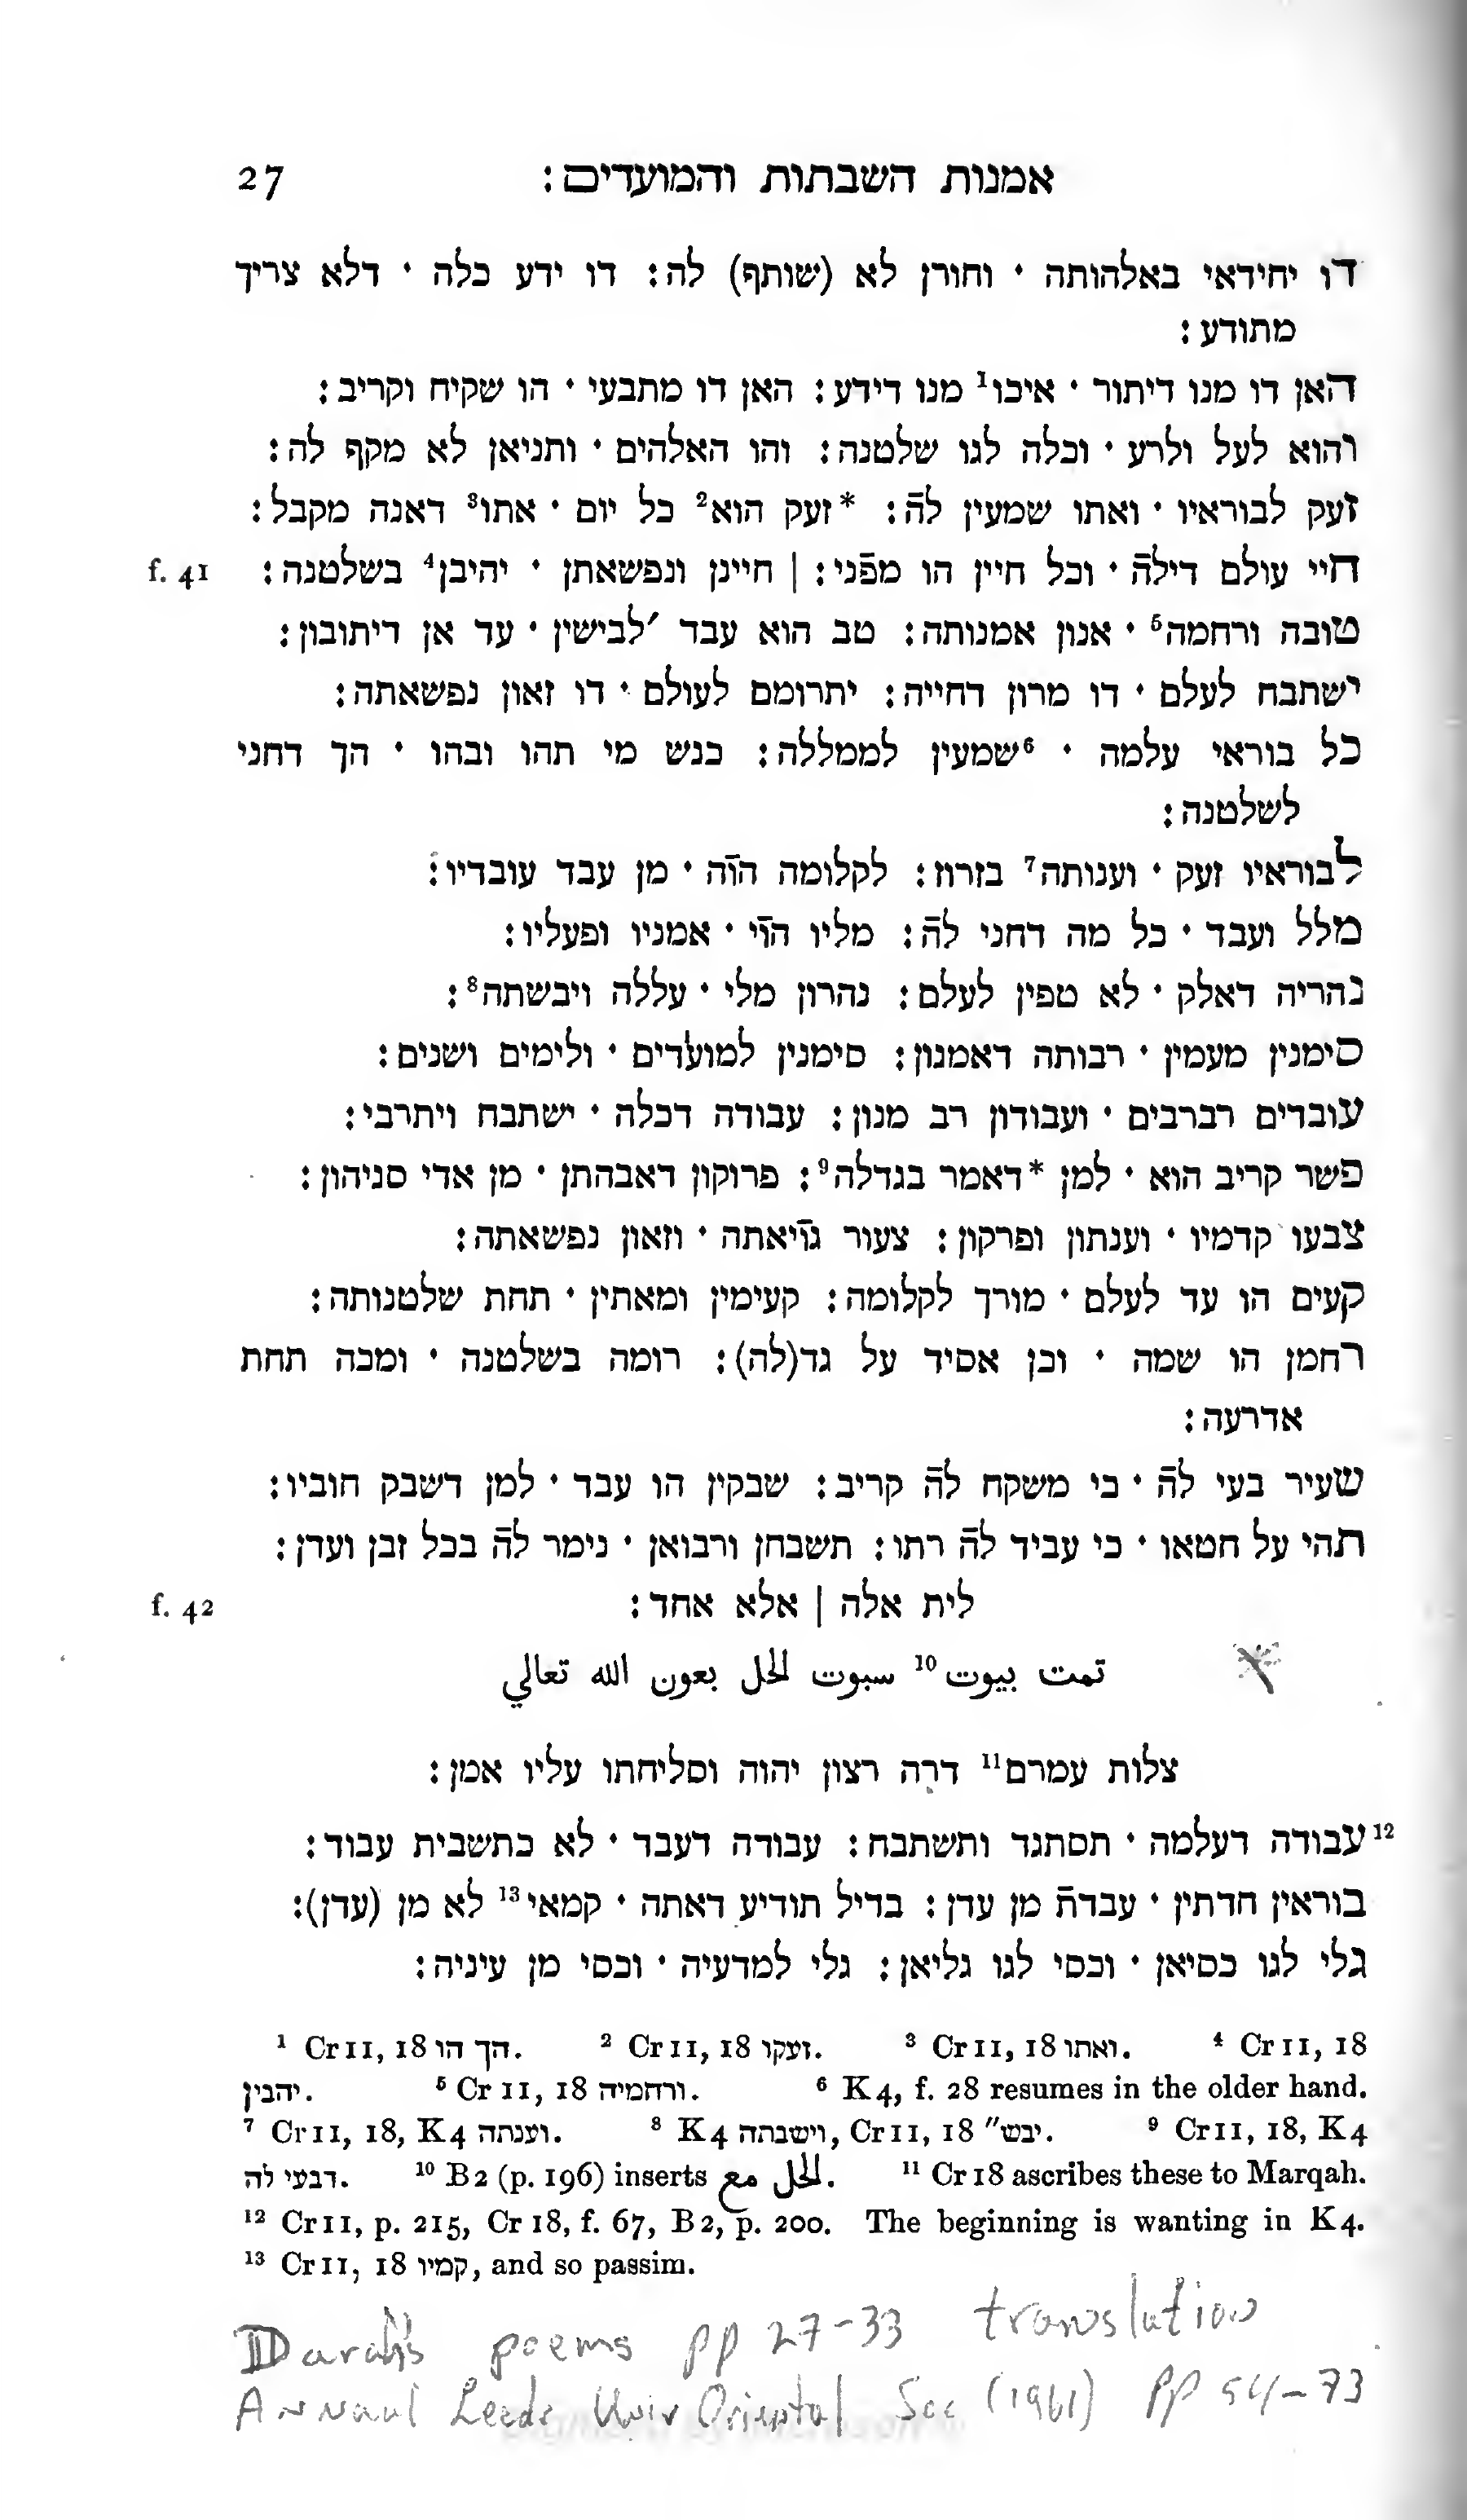 אמנות השבתות והמועדים : 27
דו יחידאי באלהותה · וחורן לא (שותף) לה : דו ידע כלה · דלא צריך
מתודע :
האן דו מנו דיתור · איכו¹ מנו דידע : האן דו מתבעי · הו שקיח וקריב :
והוא לעל ולרע · וכלה לגו שלטנה : והו האלהים · ותניאן לא מקף לה :
זעק לבוראיו · ואתו שמעין לה̄ : *זעק הוא² כל יום · אתו³ דאנה מקבל :
חיי עולם דילה̄ · וכל חיין הו מפ̄ני : | חיינן ונפשאתן · יהיבן⁴ בשלטנה : f. 41
טובה ורחמה⁵ · אנון אמנותה : טב הוא עבד ׳לבישין · עד אן דיתובון :
ישתבח לעלם · דו מרון דחייה : יתרומם לעולם · דו זאון נפשאתה :
כל בוראי עלמה · ⁶שמעין לממללה : כנש מי תהו ובהו · הך דחני
לשלטנה :
לבוראיו זעק · וענותה⁷ בזרוז : לקלומה הו̄ה · מן עבד עובדיו :
מלל ועבד · כל מה דחני לה̄ : מליו הו̄י · אמניו ופעליו :
נהריה דאלק · לא טפין לעלם : נהרון מלי · עללה ויבשתה⁸ :
סימנין מעמין · רבותה דאמנון : סימנין למועדים · ולימים ושנים :
עובדים רברבים · ועבודון רב מנון : עבודה דכלה · ישתבח ויתרבי :
פשר קריב הוא · למן *דאמר בגדלה⁹ : פרוקון דאבהתן · מן אדי סניהון :
צבעו קדמיו · וענתון ופרקון : צעור גו̄יאתה · וזאון נפשאתה :
קעים הו עד לעלם · מורך לקלומה : קעימין ומאתין · תחת שלטנותה :
רחמן הו שמה · וכן אסיד על גד(לה) : רומה בשלטנה · ומכה תחת
אדרעה :
שעיר בעי לה̄ · כי משקח לה̄ קריב : שבקין הו עבד · למן דשבק חוביו :
תהי על חטאו · כי עביד לה̄ רתו : תשבחן ורבואן · נימר לה̄ בכל זבן ועדן :
לית אלה | אלא אחד : f. 42
تمت بيوت¹⁰ سبوت الخل بعون الله تعالي
צלות עמרם¹¹ דרה רצון יהוה וסליחתו עליו אמן :
¹²עבודה דעלמה · תסתגד ותשתבח : עבודה דעבד · לא כתשבית עבוד :
בוראין חדתין · עבדת̄ מן עדן : בדיל תודיע דאתה · קמאי¹³ לא מן (עדן) :
גלי לגו כסיאן · וכסי לגו גליאן : גלי למדעיה · וכסי מן עיניה :
¹ Cr 11, 18 הך הו. ² Cr 11, 18 זעקו. ³ Cr 11, 18 ואתו. ⁴ Cr 11, 18
יהבין. ⁵ Cr 11, 18 ורחמיה. ⁶ K4, f. 28 resumes in the older hand.
⁷ Cr 11, 18, K4 וענתה. ⁸ K4 וישבתה, Cr 11, 18 יבש״. ⁹ Cr 11, 18, K4
דבעי לה. ¹⁰ B2 (p. 196) inserts الخل مع. ¹¹ Cr 18 ascribes these to Marqah.
¹² Cr 11, p. 215, Cr 18, f. 67, B2, p. 200. The beginning is wanting in K4.
¹³ Cr 11, 18 קמיו, and so passim.
Darah's poems pp 27-33 translation
Annual Leeds Univ Oriental Soc (1961) pp 54-73